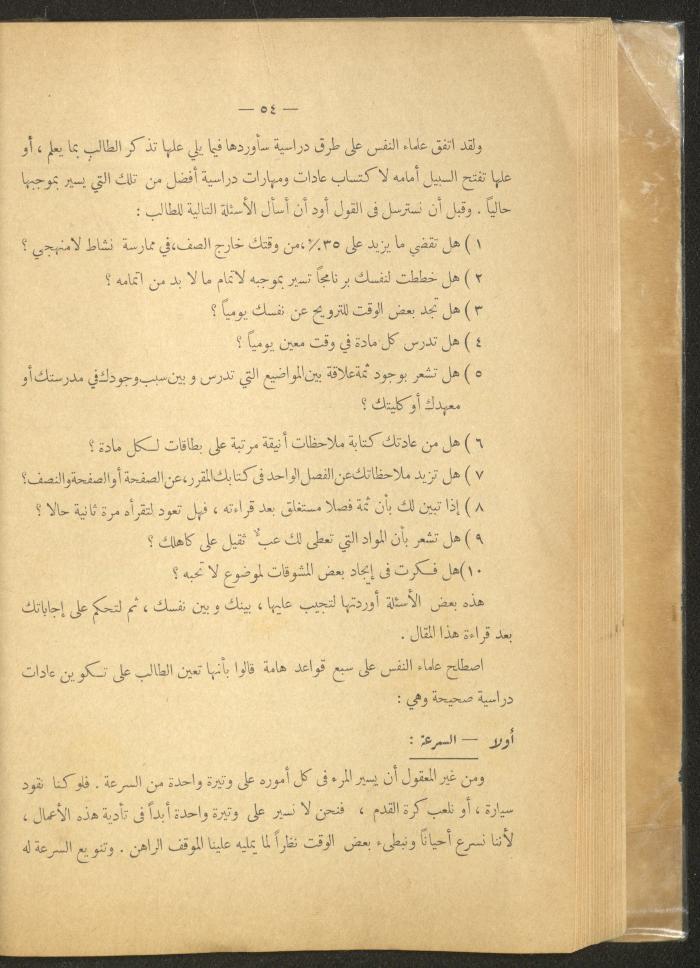 — ٥٤ —
ولقد اتفق علماء النفس على طرق دراسية سأوردها فيما يلي علها تذكر الطالب بما يعلم ، أو
علها تفتح السبيل أمامه لاكتساب عادات ومهارات دراسية أفضل من تلك التي يسير بموجبها
حالياً . وقبل أن نسترسل فى القول أود أن أسأل الأسئلة التالية للطالب :
١ ) هل تقضي ما يزيد على ٣٥٪ ،من وقتك خارج الصف،في ممارسة نشاط لامنهجي ؟
٢ ) هل خططت لنفسك برنامجاً تسير بموجبه لاتمام ما لا بد من اتمامه ؟
٣ ) هل تجد بعض الوقت للترويح عن نفسك يومياً ؟
٤ ) هل تدرس كل مادة في وقت معين يومياً ؟
٥ ) هل تشعر بوجود ثمة علاقة بين المواضيع التي تدرس و بين سبب وجودك في مدرستك أو
معهدك أو كليتك ؟
٦ ) هل من عادتك كتابة ملاحظات أنيقة مرتبة على بطاقات لكل مادة ؟
٧ ) هل تزيد ملاحظاتك عن الفصل الواحد فى كتابك المقرر،عن الصفحة أو الصفحة والنصف؟
٨ ) إذا تبين لك بأن ثمة فصلا مستغلق بعد قراءته ، فهل تعود لتقرأه مرة ثانية حالا ؟
٩ ) هل تشعر بأن المواد التي تعطى لك عبء ثقيل على كاهلك ؟
١٠)هل فكرت فى إيجاد بعض المشوقات لموضوع لا تحبه ؟
هذه بعض الأسئلة أوردتها لتجيب عليها ، بينك و بين نفسك ، ثم لتحكم على إجاباتك
بعد قراءة هذا المقال .
اصطلح علماء النفس على سبع قواعد هامة قالوا بأنها تعين الطالب على تكوين عادات
دراسية صحيحة وهي :
أولا — السرعة :
ومن غير المعقول أن يسير المرء فى كل أموره على وتيرة واحدة من السرعة . فلو كنا نقود
سيارة ، أو نلعب كرة القدم ، فنحن لا نسير على وتيرة واحدة أبداً فى تأدية هذه الأعمال ،
لأننا نسرع أحياناً ونبطىء بعض الوقت نظراً لما يمليه علينا الموقف الراهن . وتنويع السرعة له